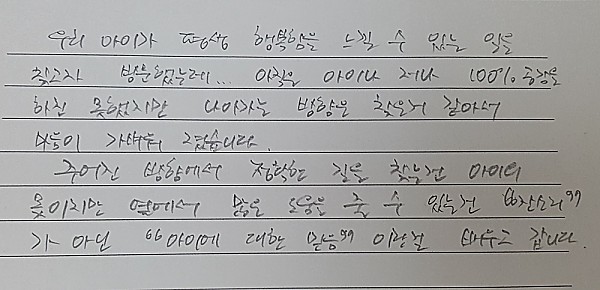 우리 아이가 평생 행복함을 느낄 수 있는 일을
찾고자 방문했는데... 아직은 아이나 저나 100% 공감을
하진 못했지만 나아가는 방향은 찾은거 같아서
마음이 가벼워 졌습니다.
주어진 방향에서 정확한 길을 찾는건 아이의
몫이지만 옆에서 많은 도움을 줄 수 있는건 "잔소리"
가 아닌 "아이에 대한 믿음" 이란걸 배우고 갑니다.